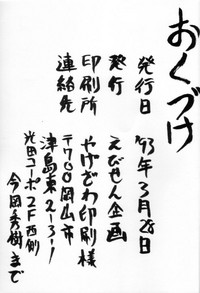 おくづけ
発行日 '93年3月28日
発行 えびせん企画
印刷所 やけざわ印刷様
連絡先 〒700 岡山市
津島東2-3-1
光田コーポ2F西側
今岡秀樹まで